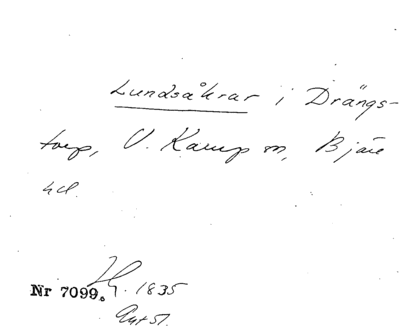 Lundsåkrar i Drängs-
torp, V. Karup sn, Bjäre
hd.
Nr 7099. 1835